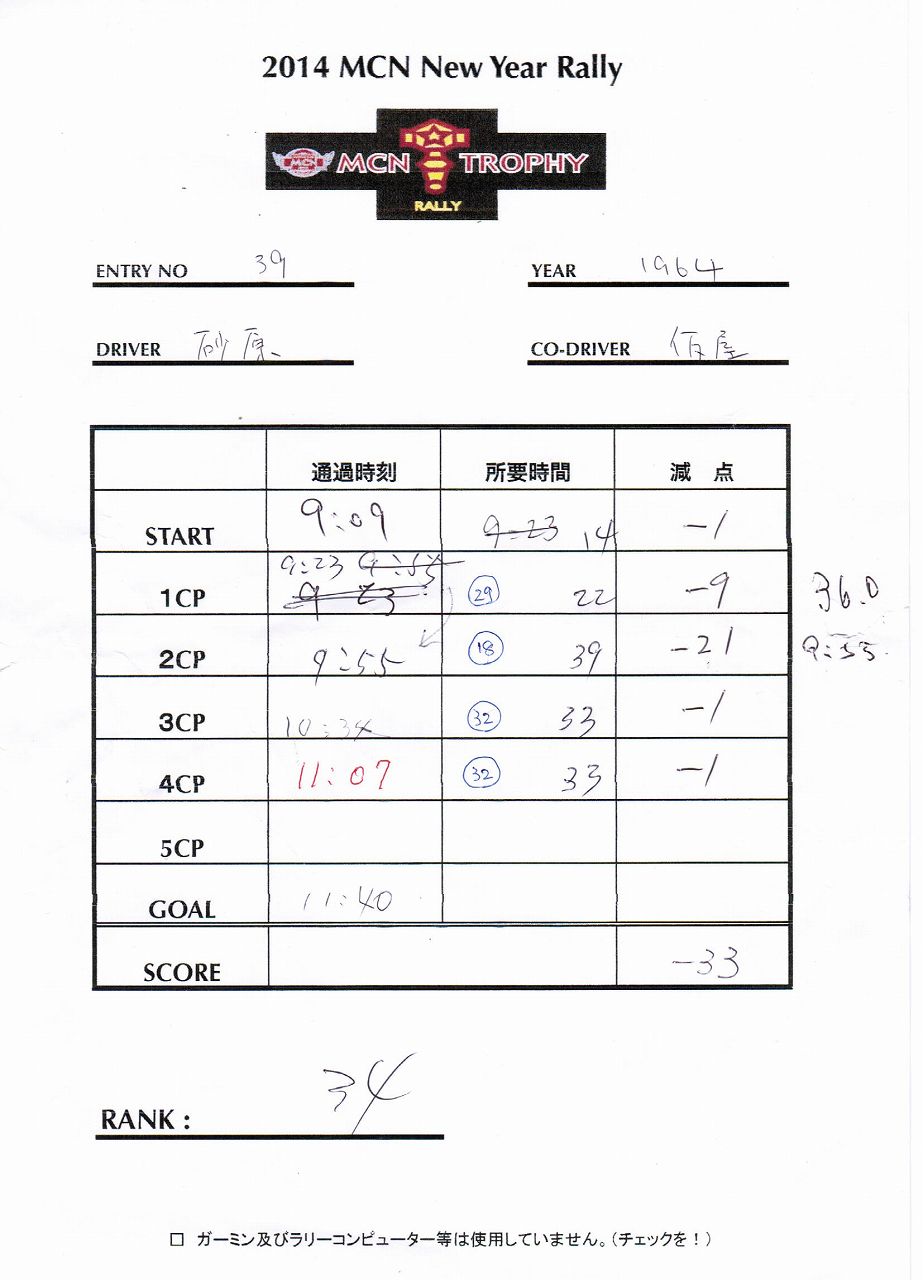 2014 MCN New Year Rally
MCN MCN TROPHY
RALLY
ENTRY NO 39 YEAR 1964
DRIVER 砂原 CO-DRIVER 仮屋
通過時刻 所要時間 減 点
START 9:09 9-23 14 -1
1CP 9:23 9:55 9 23 29 22 -9 36.0
2CP 9:55 18 39 -21 9:55
3CP 10:34 32 33 -1
4CP 11:07 32 33 -1
5CP
GOAL 11:40
SCORE -33
RANK : 34
□ ガーミン及びラリーコンピューター等は使用していません。(チェックを!)